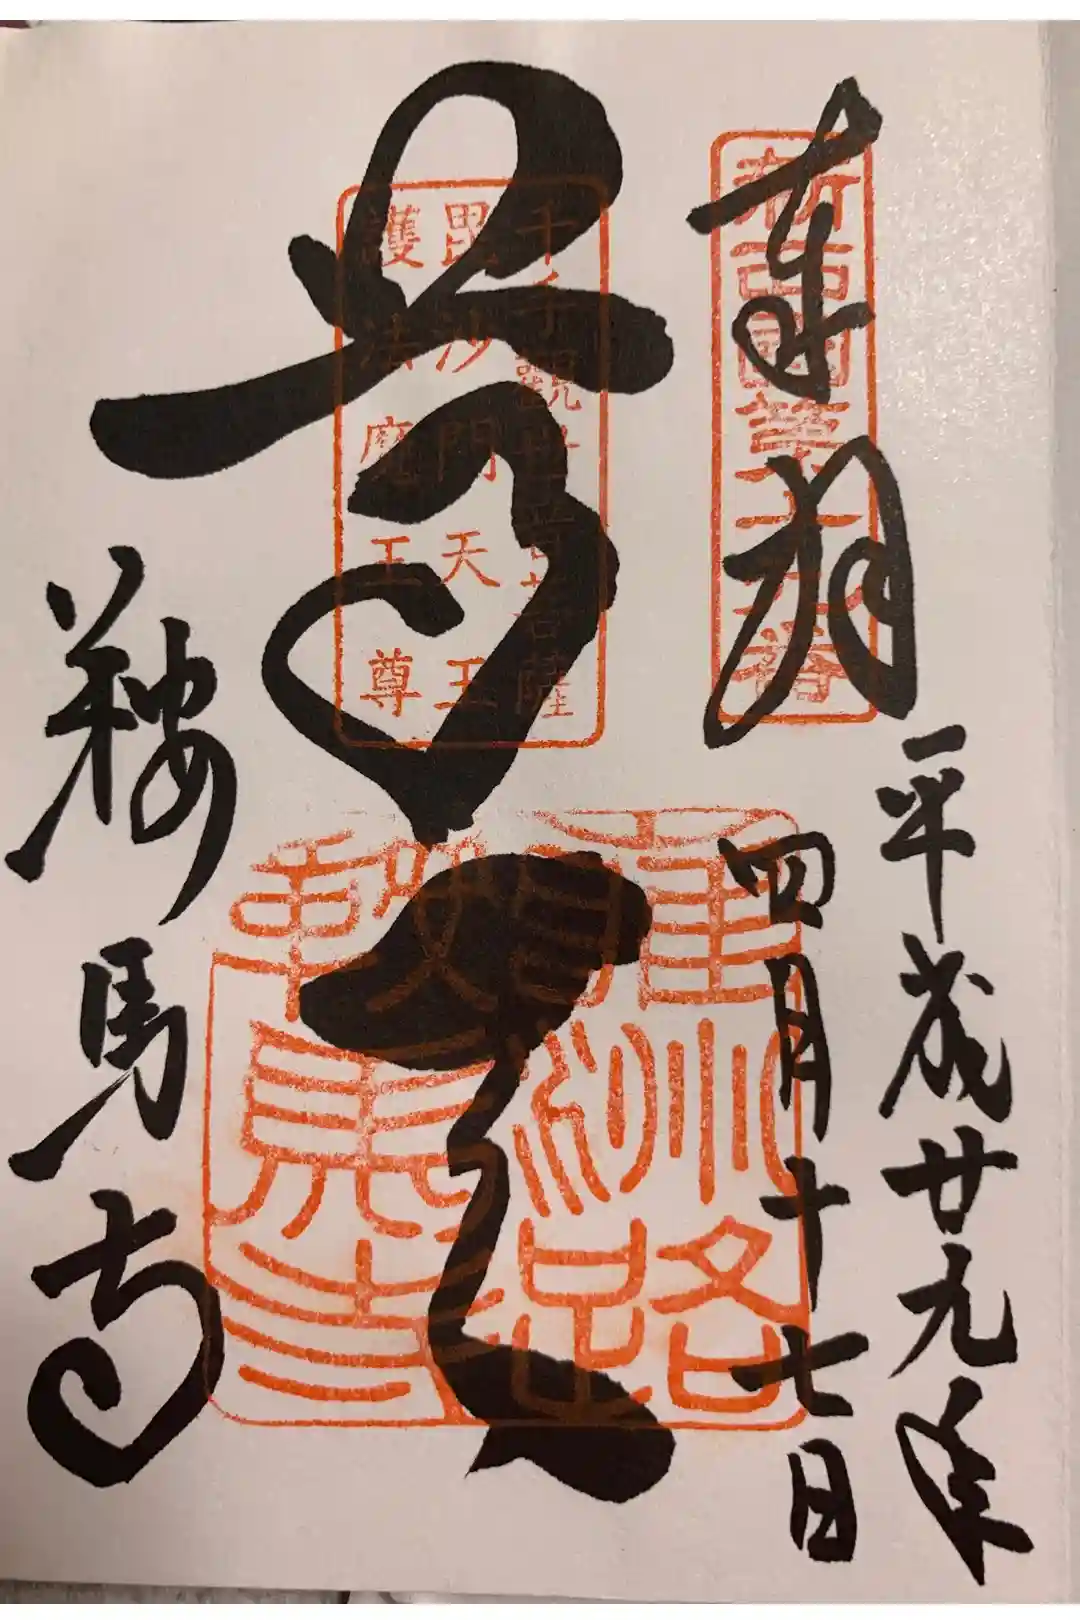 奉拝
新西国第十九番
平成廿九年
四月十七日
尊天
千手観世音菩薩
毘沙門天王
護法魔王尊
雍州路
鞍馬寺
鞍馬寺